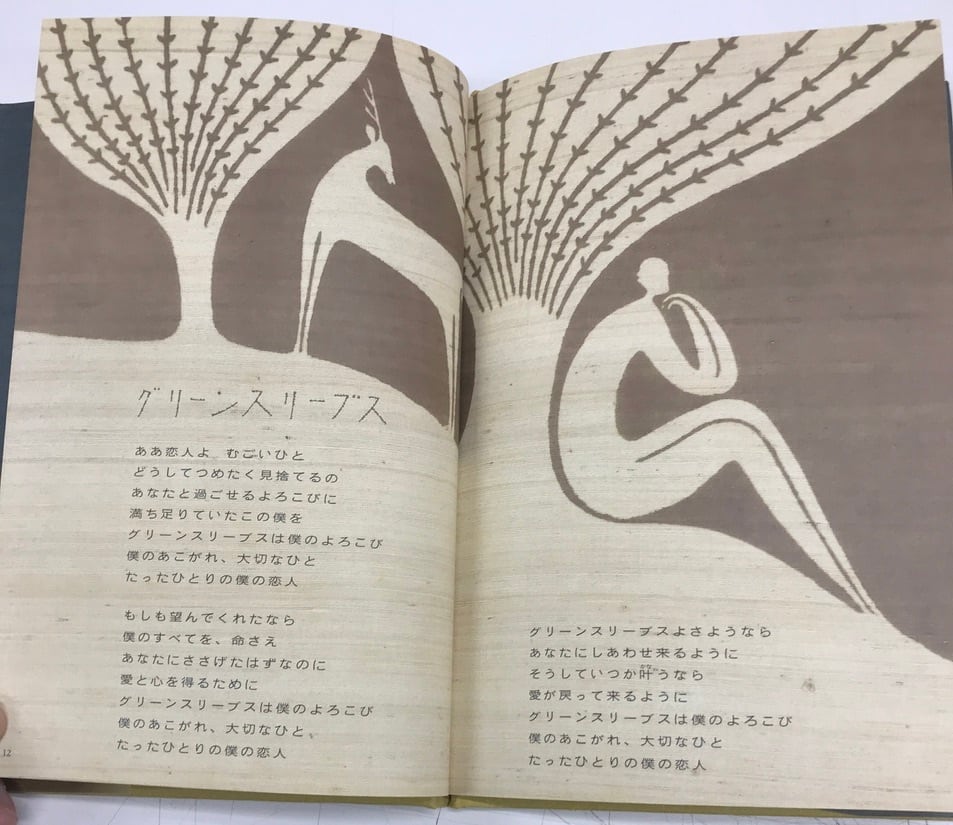 グリーンスリーブス
ああ恋人よ　むごいひと
どうしてつめたく見捨てるの
あなたと過ごせるよろこびに
満ち足りていたこの僕を
グリーンスリーブスは僕のよろこび
僕のあこがれ、大切なひと
たったひとりの僕の恋人
もしも望んでくれたなら
僕のすべてを、命さえ
あなたにささげたはずなのに
愛と心を得るために
グリーンスリーブスは僕のよろこび
僕のあこがれ、大切なひと
たったひとりの僕の恋人
12
グリーンスリーブスよさようなら
あなたにしあわせ来るように
そうしていつか叶うなら
愛が戻って来るように
グリーンスリーブスは僕のよろこび
僕のあこがれ、大切なひと
たったひとりの僕の恋人